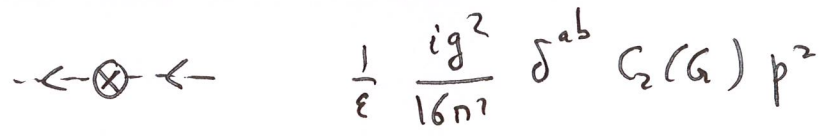 1/ε ig²/16π² δ^{ab} C₂(G) p²